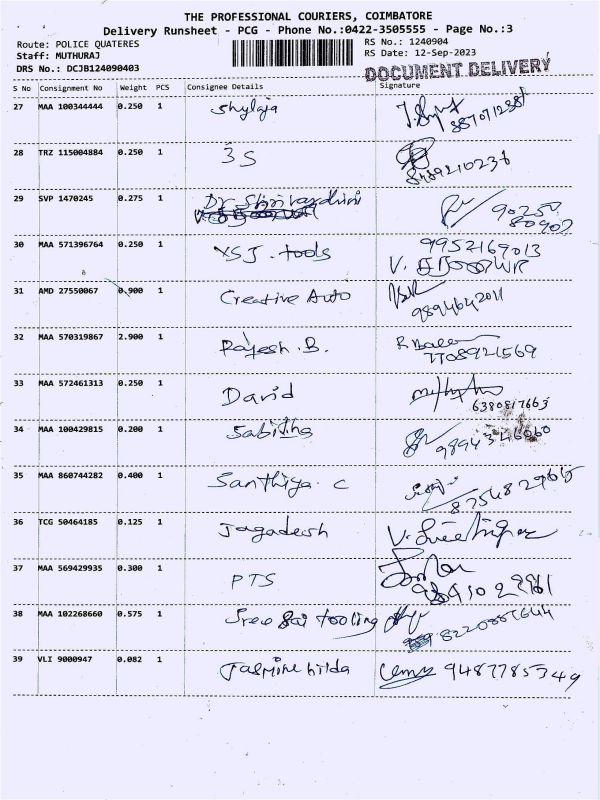 THE PROFESSIONAL COURIERS, COIMBATORE
Delivery Runsheet - PCG - Phone No.:0422-3505555 - Page No.:3
Route: POLICE QUATERES RS No.: 1240904
Staff: MUTHURAJ RS Date: 12-Sep-2023
DRS No.: DCJB124090403 DOCUMENT DELIVERY
S No Consignment No Weight PCS Consignee Details Signature
27 MAA 100344444 0.250 1 Shylaja
28 TRZ 115004884 0.250 1 3 S
8489210237
29 SVP 1470245 0.275 1 Dr Shrivardhini
90250
80902
30 MAA 571396764 0.250 1 XSJ. tools 9952169013
31 AMD 27550067 0.900 1 Creative Auto
9894642011
32 MAA 570319867 2.900 1 Rajesh. B.
7708921569
33 MAA 572461313 0.250 1 David
6380817663
34 MAA 100429815 0.200 1 Sabitha
35 MAA 860744282 0.400 1 Santhiya. C
36 TCG 50464185 0.125 1 Jagadesh
37 MAA 569429935 0.300 1 PTS
38 MAA 102268660 0.575 1 Sree Sai tooling
39 VLI 9000947 0.082 1 Jasmine hilda 9487785349